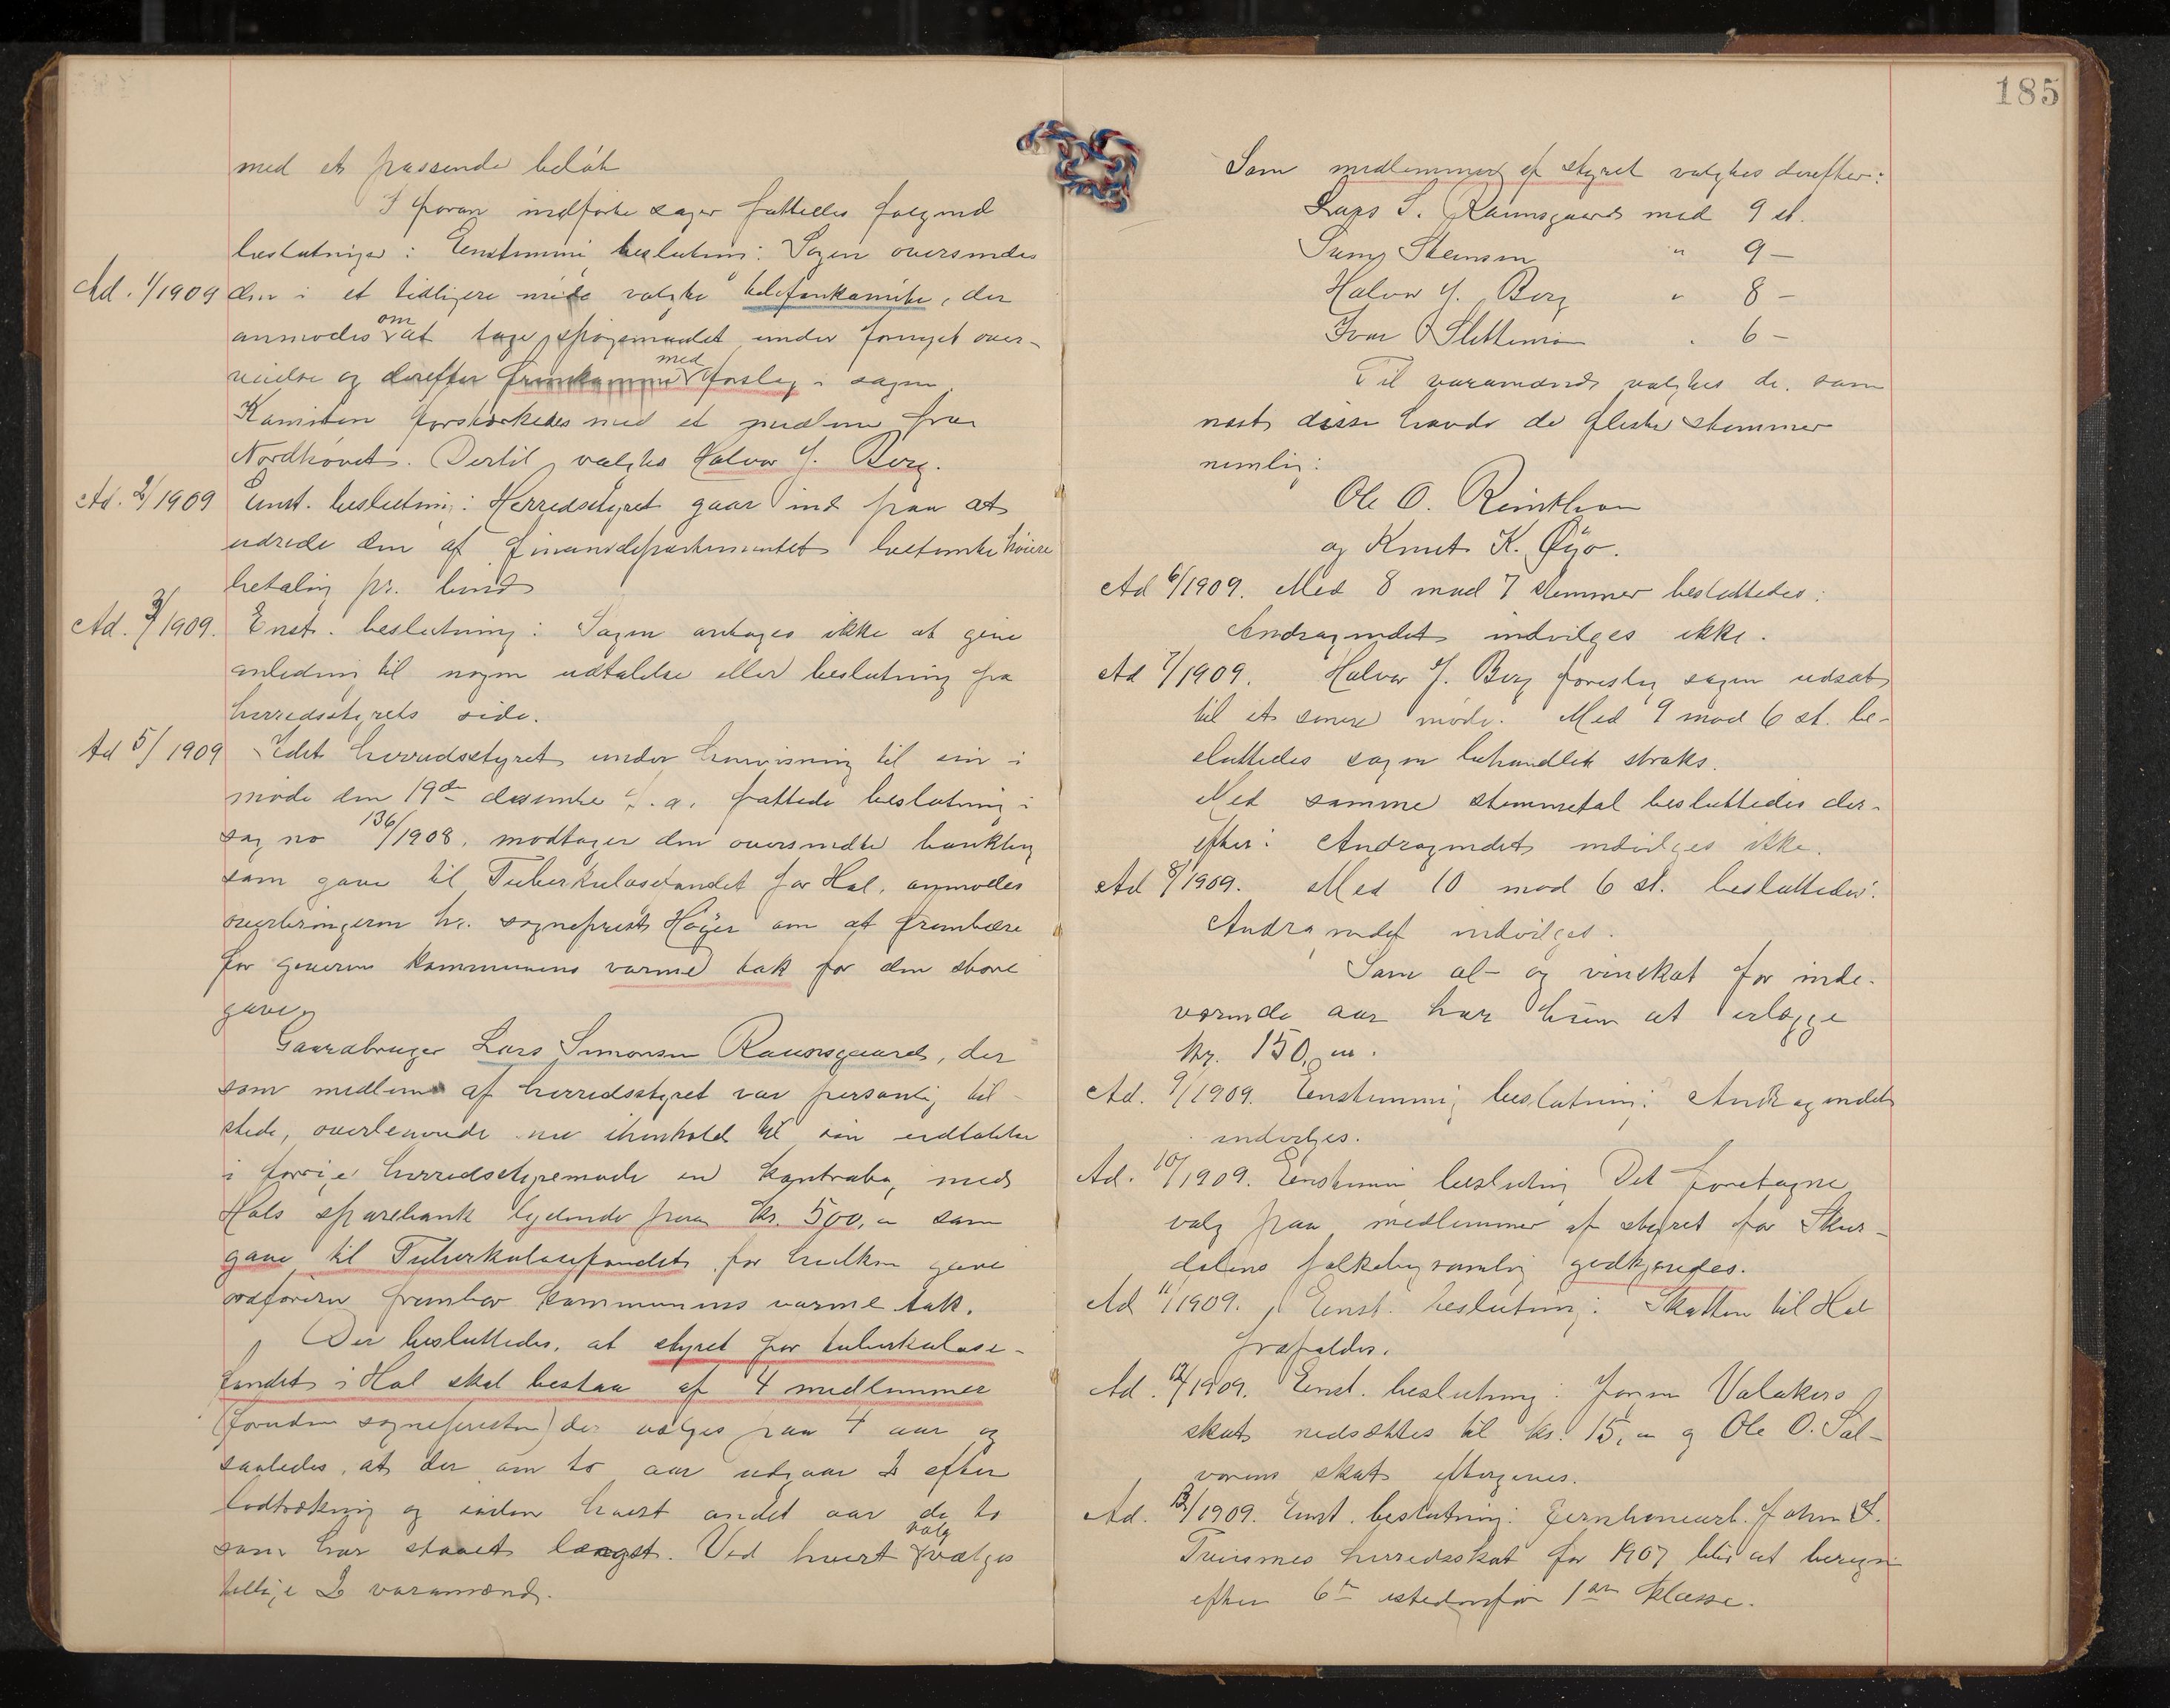 med et passende beløb
I foran indførte sager fattedes følgende
beslutninger: Enstemmig beslutning: Sagen oversendes
Ad. 1/1909 den i et tidligere møde valgte telefonkomite, der
anmodes om at tage spørgsmaalet under fornyet over-
veielse og derefter fremkomme med forslag i sagen.
Komiteen forstærkedes med et medlem fra
Nordhovet. Dertil valgtes Halvor J. Berg.
Ad. 2/1909 Enst. beslutning: Herredsstyret gaar ind paa at
udrede den af Finansdepartementet bestemte høiere
betaling pr. bind
Ad. 3/1909. Enst. beslutning: Sagen antages ikke at give
anledning til nogen udtalelse eller beslutning fra
herredsstyrets side.
Ad 5/1909 Idet herredsstyret under henvisning til sin i
møde den 19de desember f. a. fattede beslutning i
sag no 136/1908, modtager den oversendte bankbog
som gave til Tuberkulosefondet for Hol, anmodes
overbringeren hr. sogneprest Høyer om at frembære
for giveren kommunens varme tak for den store
gave.
Gaardbruger Lars Simonsen Raunsgaard, der
som medlem af herredsstyret var personlig til-
stede, overleverede nu i henhold til sin udtalelse
i forrige herredsstyremøde en kontrabog med
Hols sparebank lydende paa kr. 500,00 som
gave til Tuberkulosefondet for hvilken gave
ordføreren frembar kommunens varme tak.
Der besluttedes, at styret for tuberkulose-
fondet i Hol skal bestaa af 4 medlemmer
(foruden sognepresten) der vælges paa 4 aar og
saaledes, at der om to aar udgaar 2 efter
lodtrækning og siden hvert andet aar de to
som har staaet længst. Ved hvert valg vælges
tillige 2 varamænd.
185
Som medlemmer af styret valgtes derefter:
Lars S. Raunsgaard med 9 st.
Svend Steinsen " 9 –
Halvor J. Berg " 8 –
Ivar Slettemoen " 6 –
Til varamænd valgtes de, som
næst disse havde de fleste stemmer
nemlig:
Ole O.
og Knut K. Øyo.
Ad 6/1909. Med 8 mod 7 stemmer besluttedes:
Andragendet indvilges ikke.
Ad 7/1909. Halvor J. Berg foreslog sagen udsat
til et senere møde. Med 9 mod 6 st. be-
sluttedes sagen behandlet straks.
Med samme stemmetal besluttedes der-
efter: Andragendet indvilges ikke.
Ad 8/1909. Med 10 mod 6 st. besluttedes:
Andragendet indvilges.
Som øl- og vinskat for inde-
værende aar har hun at erlægge
kr. 150,00.
Ad. 9/1909. Enstemmig beslutning: Andragendet
indvilges.
Ad. 10/1909. Enstemmig beslutning Det foretagne
valg paa medlemmer af styret for Skur-
dalens folkebogsamling godkjendes.
Ad 11/1909. Enst. beslutning: Skatten til Hol
frafaldes.
Ad. 12/1909. Enst. beslutning: Valakers
skat nedsættes til kr. 15,00 og Ole O. Sal-
vorens skat eftergives.
Ad. 13/1909. Enst. beslutning: Jernbanearb. Johan S.
herredsskat for 1907 blir at beregne
efter 6te istedenfor 1ste klasse.